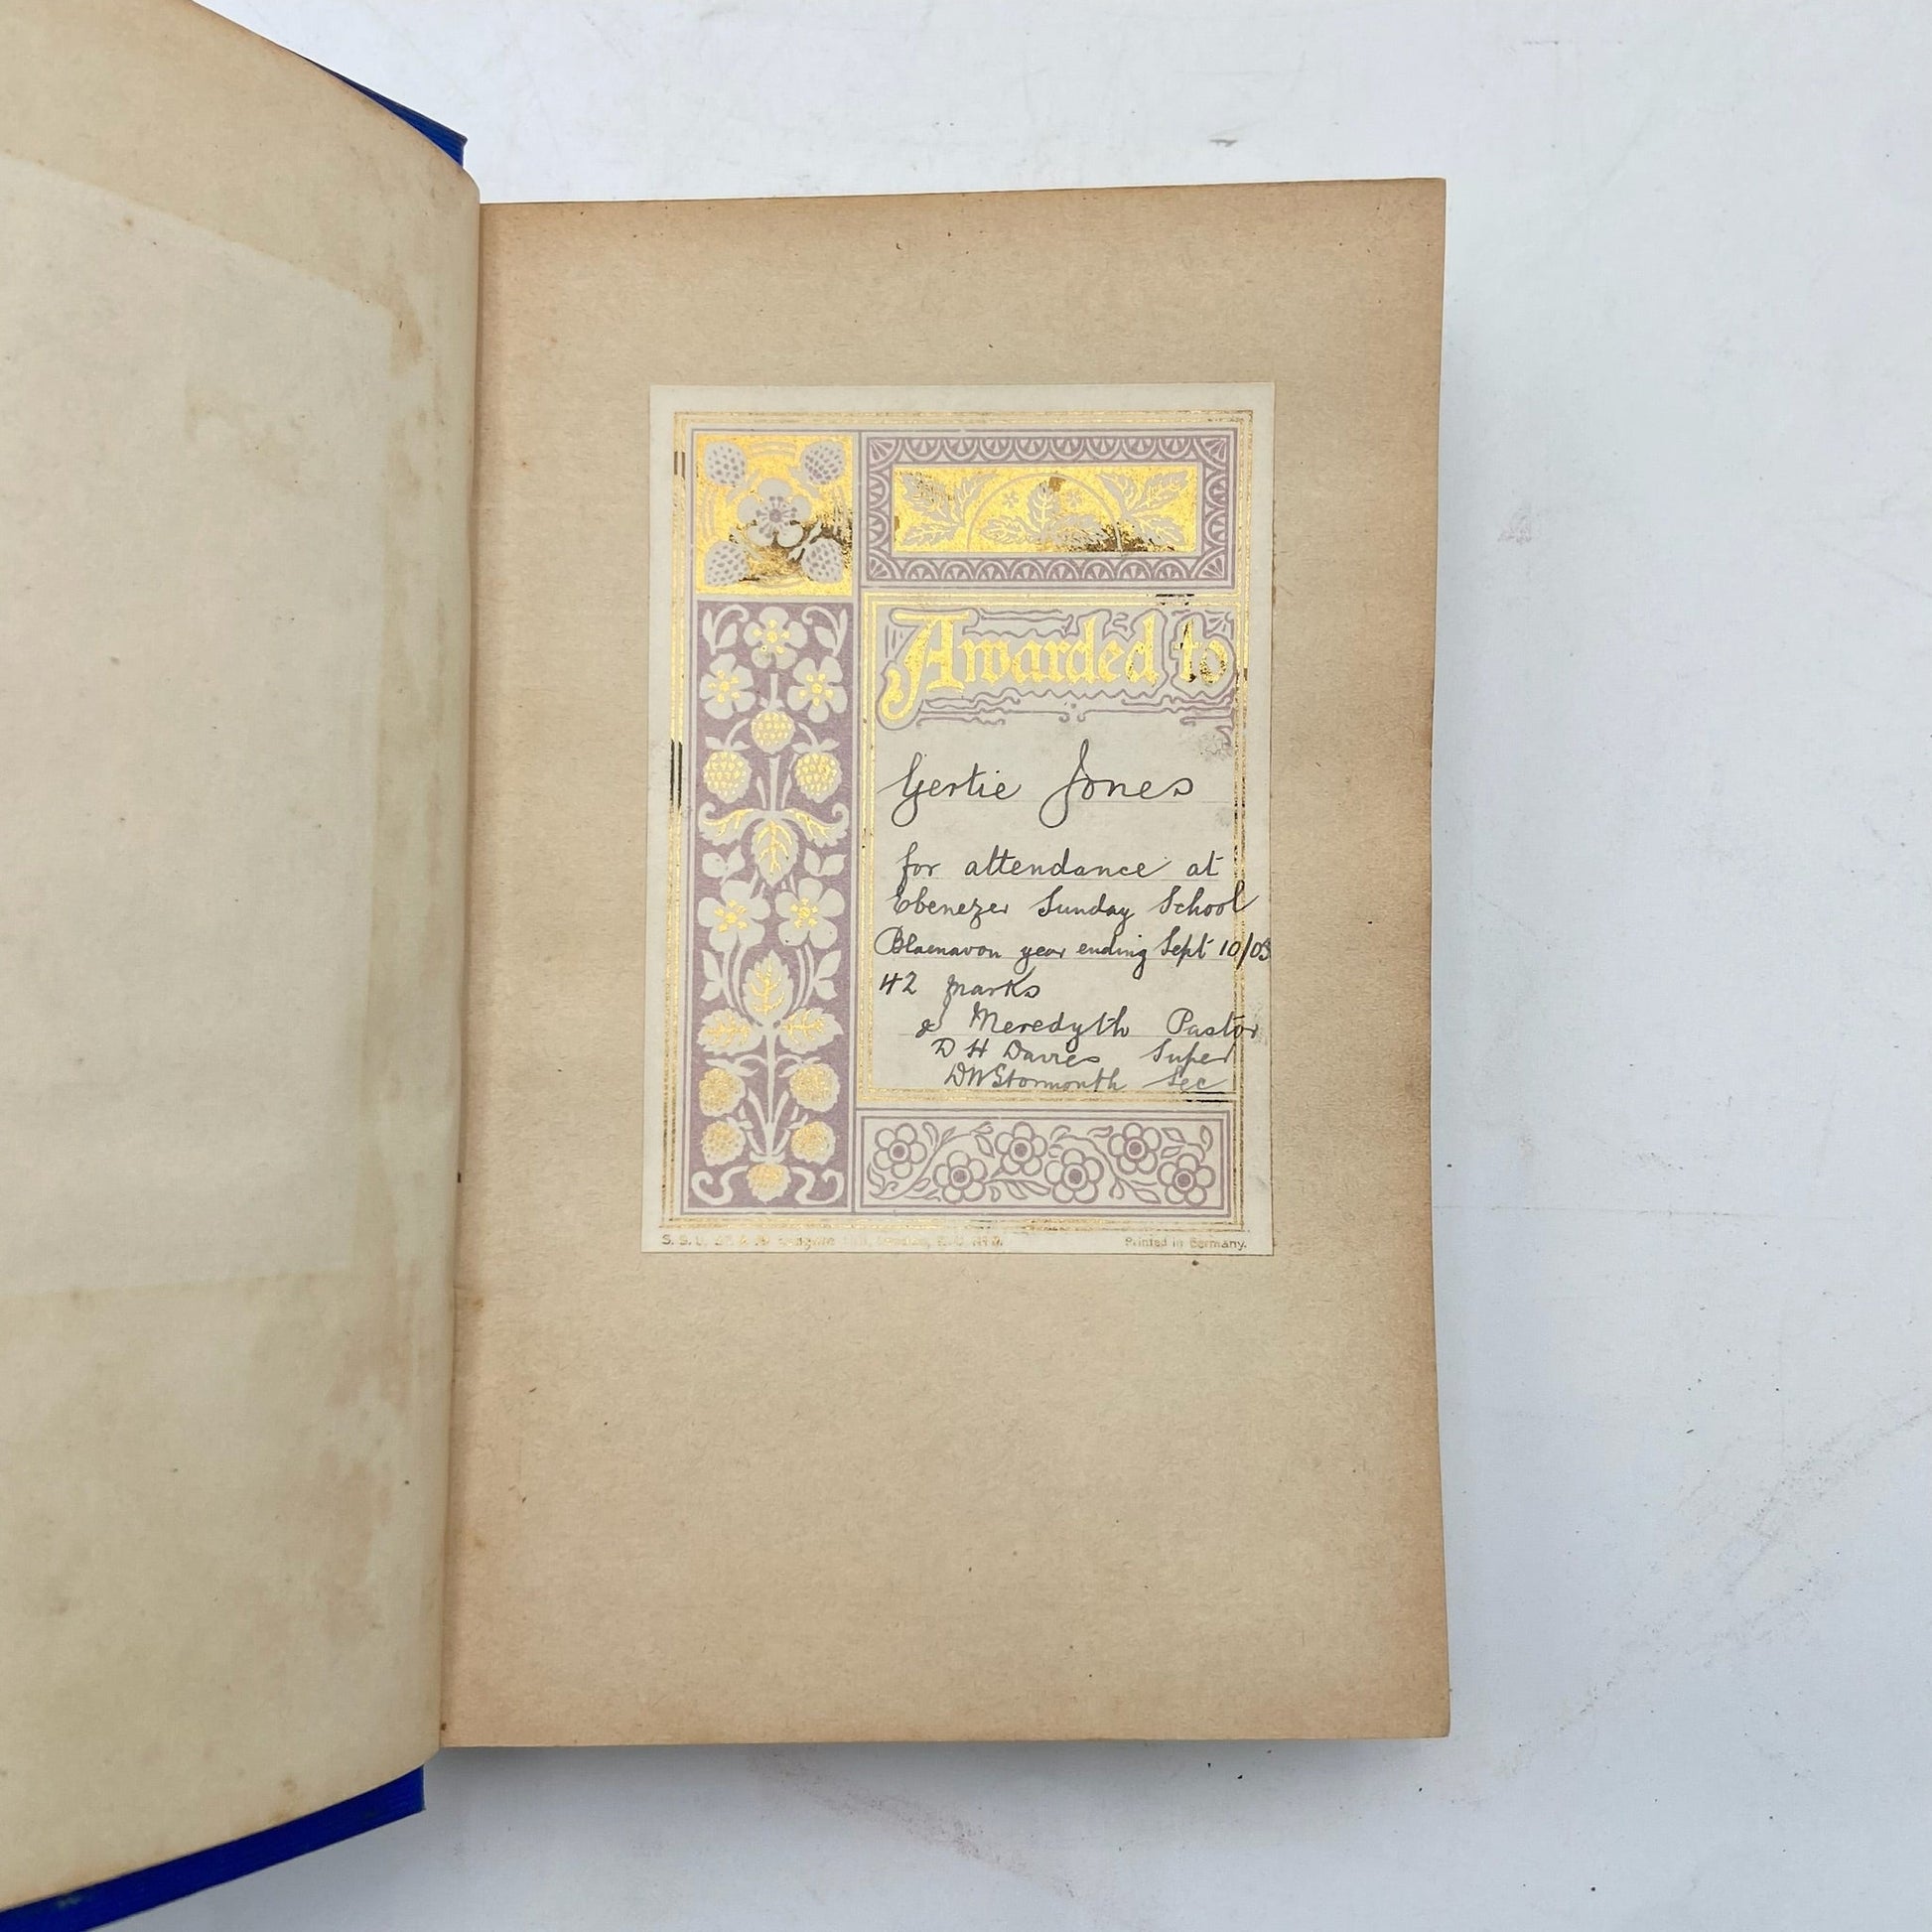 Awarded to
Gertie Jones
for attendance at
Ebenezer Sunday School
Blaenavon year ending Sept 10/03
42 marks
Meredyth Pastor
D H Davies Super
D W Stormonth Sec
S. S. U. London, E. C.
Printed in Germany.